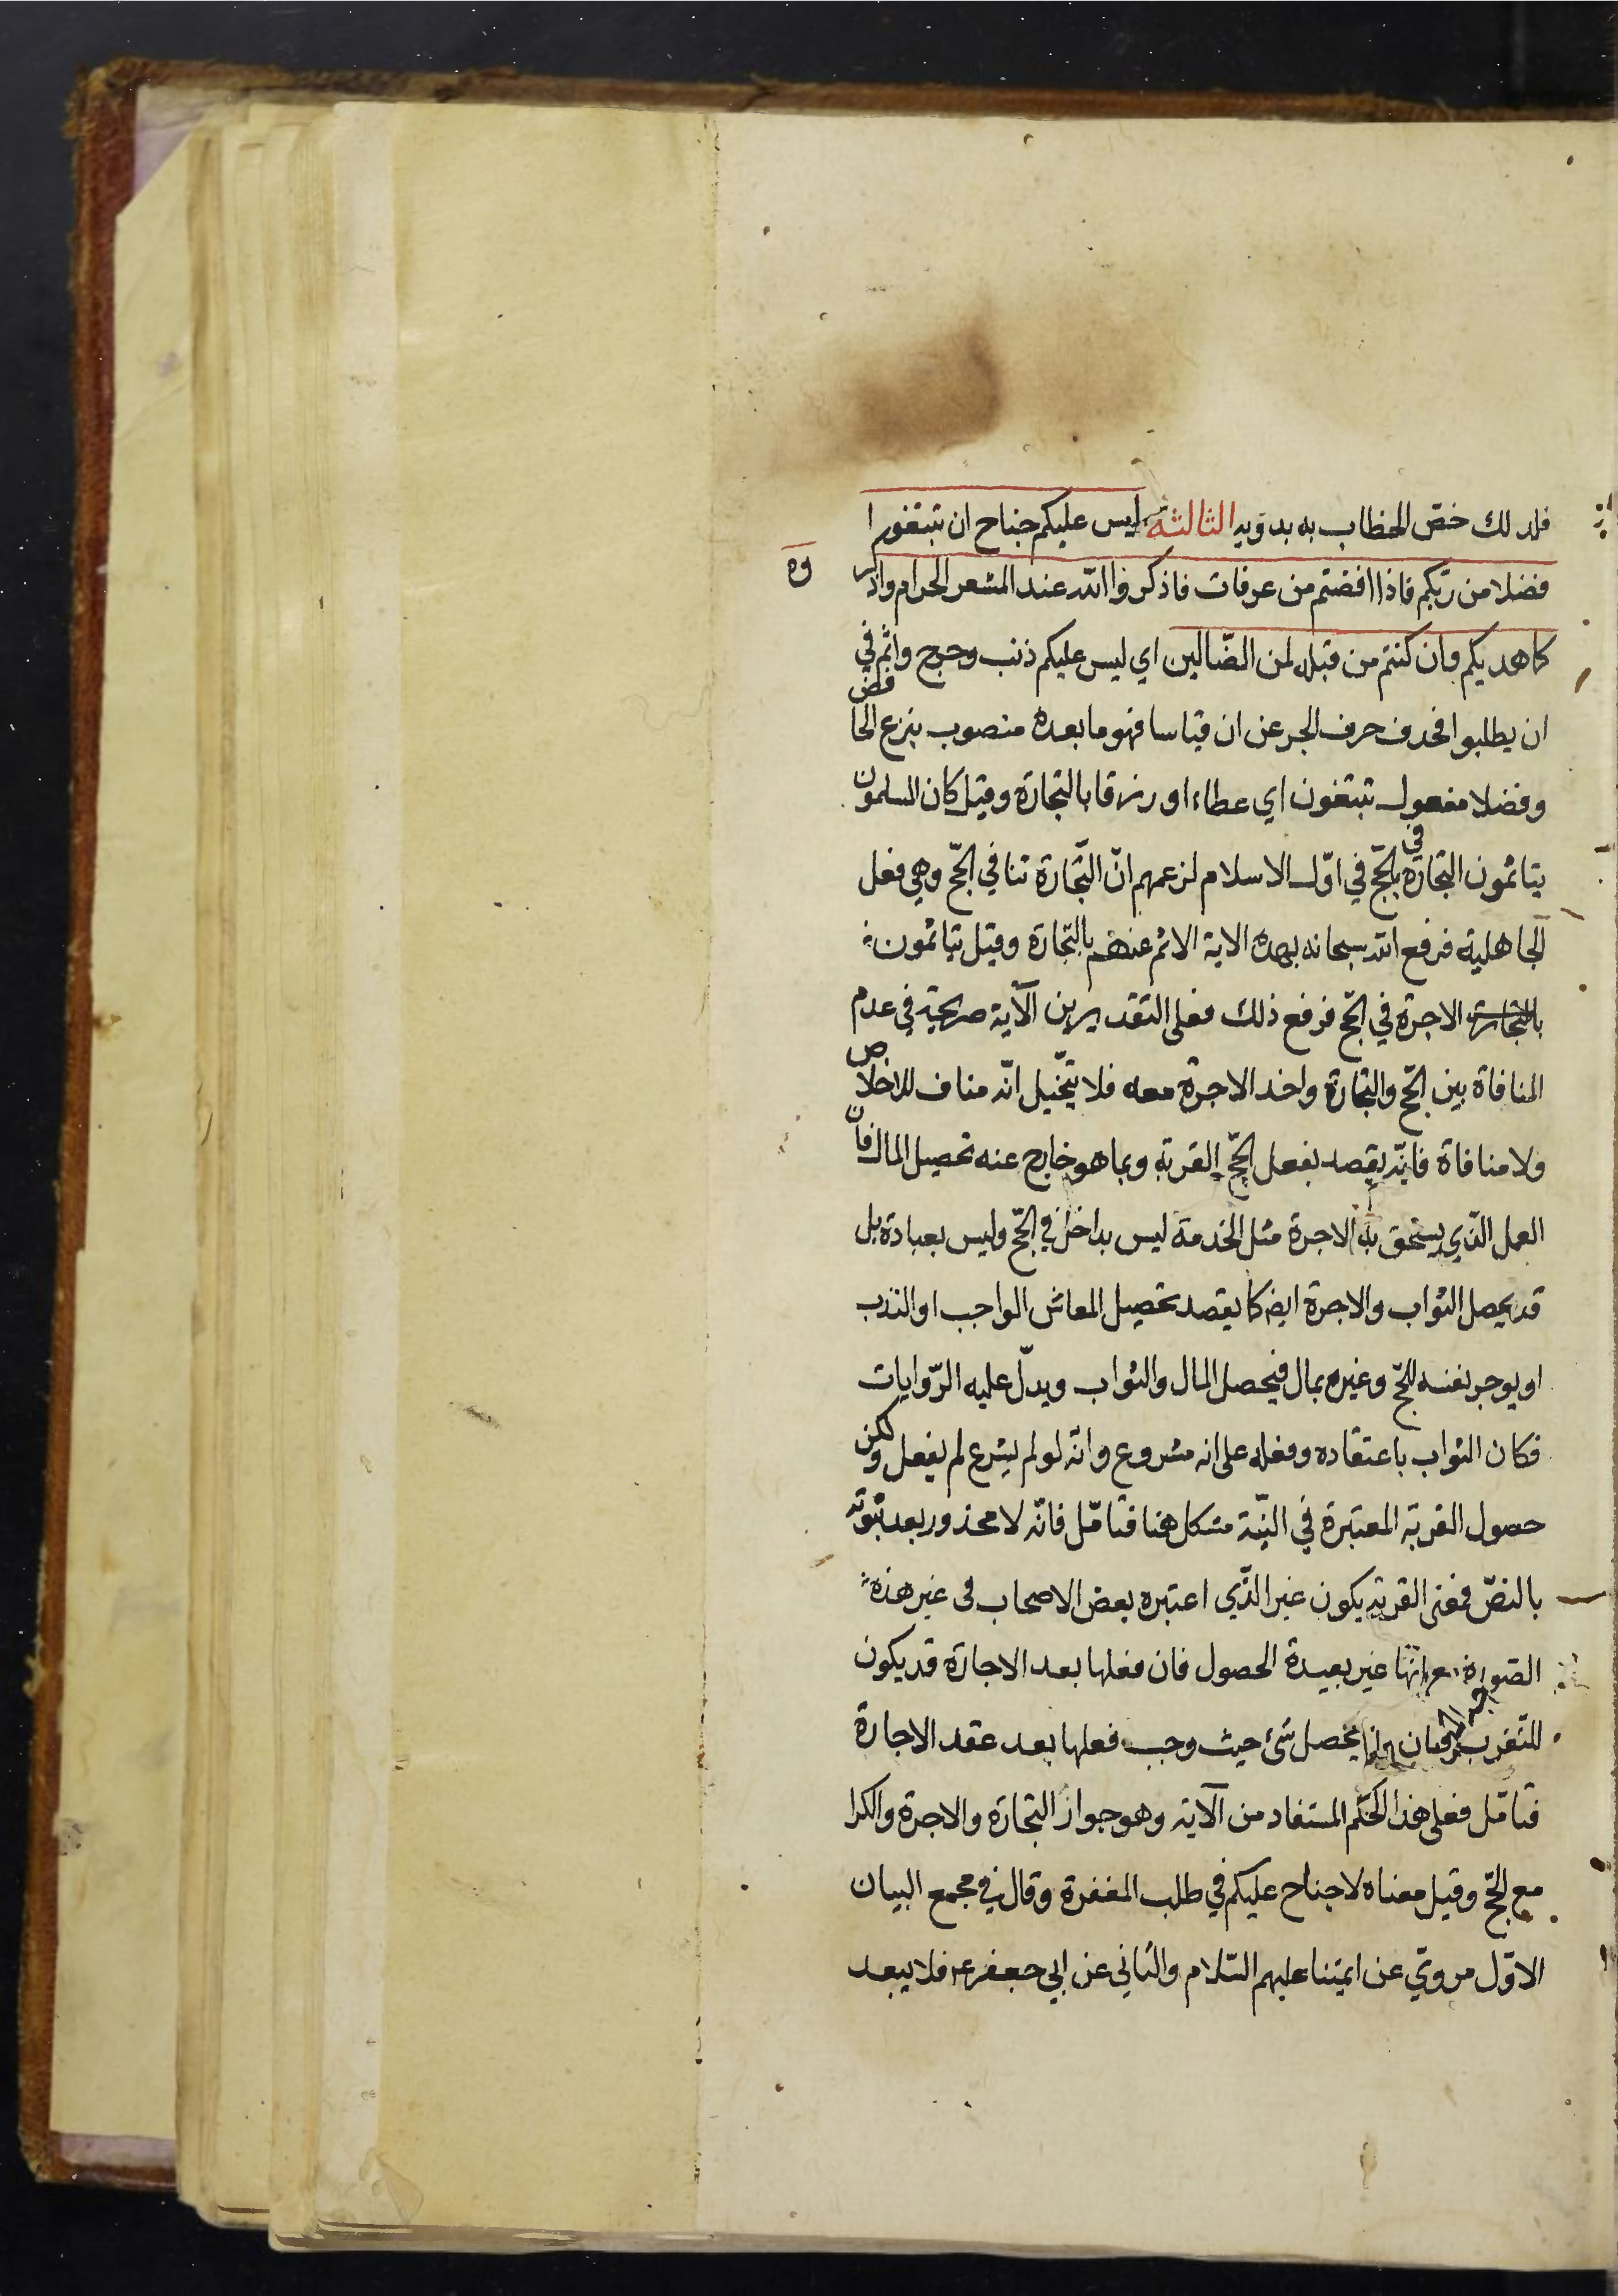 فلذلك خصّ الخطاب به بدونه الثالثة ليس عليكم جناح ان تبتغوا
فضلا من ربّكم فاذا افضتم من عرفات فاذكروا الله عند المشعر الحرام واذكر
وه
كما هديكم وان كنتم من قبله لمن الضّالين اي ليس عليكم ذنب وحرج واثم في
ان يطلبوا فحذف حرف الجر عن ان قياسا فهو ما بعده منصوب بنزع الخافض
وفضلا مفعول تبتغون اي عطاء او رزقا بالتجارة وقيل كان المسلمون
يتاثمون التجارة في الحجّ في اوّل الاسلام لزعمهم انّ التّجارة تنافي الحجّ وهي فعل
الجاهلية فرفع الله سبحانه بهذه الاية الاثم عنهم بالتّجارة وقيل يتاثمون
بالتجارة الاجرة في الحجّ فرفع ذلك فعلى التقديرين الآية صريحة في عدم
المنافاة بين الحجّ والتجارة واخذ الاجرة معه فلا يتخيّل انّه مناف للاخلاص
ولا منافاة فانّه يقصد بفعل الحجّ القربة وبما هو خارج عنه تحصيل المال فان
العمل الذّي يستحق به الاجرة مثل الخدمة ليس بداخل في الحجّ وليس بعبادة بل
قد يحصل الثواب والاجرة ايضا كما يقصد تحصيل المعاش الواجب او الندب
او يوجر نفسه للحجّ وغيره بمال فيحصل المال والثواب ويدلّ عليه الرّوايات
فكان الثواب باعتقاده وفعله على انه مشروع وانّه لو لم يشرع لم يفعل ولكن
حصول القربة المعتبرة في النيّة مشكل هنا فتامّل فانّه لا محذور بعد ثبوته
بالنصّ فمعنى القربة يكون غير الذّي اعتبره بعض الاصحاب في غير هذه
الصّورة مع انّها غير بعيدة الحصول فان فعلها بعد الاجارة قد يكون
للتّقرب يحصل شئ حيث وجب فعلها بعد عقد الاجارة
فتامّل فعلى هذا الحكم المستفاد من الآية وهو جواز التجارة والاجرة والكرا
مع الحجّ وقيل معناه لا جناح عليكم في طلب المغفرة وقال في مجمع البيان
الاوّل مرويّ عن ائمّتنا عليهم السّلام والثاني عن ابي جعفر ع فلا يبعد